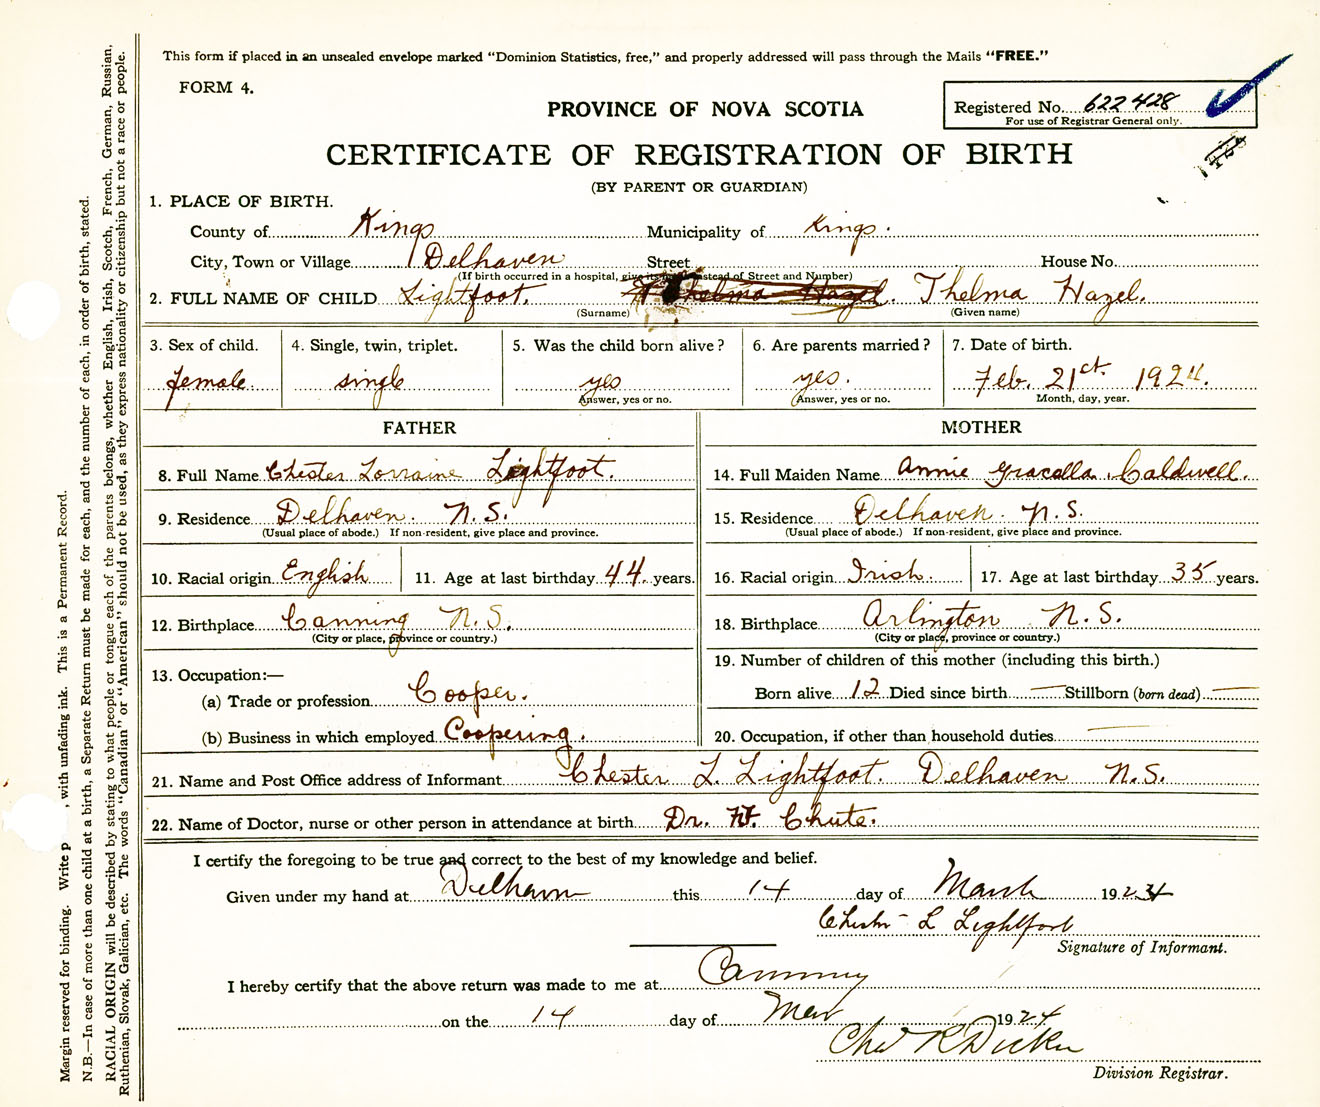 This form if placed in an unsealed envelope marked “Dominion Statistics, free,” and properly addressed will pass through the Mails “FREE.”
FORM 4.
Registered No. 622428
For use of Registrar General only.
PROVINCE OF NOVA SCOTIA
CERTIFICATE OF REGISTRATION OF BIRTH
(BY PARENT OR GUARDIAN)
1. PLACE OF BIRTH.
County of Kings Municipality of Kings.
City, Town or Village Delhaven Street House No.
(If birth occurred in a hospital, give its instead of Street and Number)
2. FULL NAME OF CHILD Lightfoot. Thelma Hazel. Thelma Hazel.
(Surname) (Given name)
3. Sex of child. 4. Single, twin, triplet. 5. Was the child born alive? 6. Are parents married? 7. Date of birth.
female. single yes yes. Feb. 21ct 1924.
Answer, yes or no. Answer, yes or no. Month, day, year.
FATHER MOTHER
8. Full Name Chester Lorraine Lightfoot. 14. Full Maiden Name Annie Gracella Caldwell.
9. Residence Delhaven. N.S. 15. Residence Delhaven. N.S.
(Usual place of abode.) If non-resident, give place and province. (Usual place of abode.) If non-resident, give place and province.
10. Racial origin English 11. Age at last birthday 44 years. 16. Racial origin Irish. 17. Age at last birthday 35 years.
12. Birthplace Canning N.S. 18. Birthplace Arlington N.S.
(City or place, province or country.) (City or place, province or country.)
13. Occupation:— 19. Number of children of this mother (including this birth.)
(a) Trade or profession Cooper. Born alive 12 Died since birth — Stillborn (born dead) —
(b) Business in which employed Coopering. 20. Occupation, if other than household duties —
21. Name and Post Office address of Informant Chester L. Lightfoot. Delhaven N.S.
22. Name of Doctor, nurse or other person in attendance at birth Dr. Chute.
I certify the foregoing to be true and correct to the best of my knowledge and belief.
Given under my hand at Delhaven this 14 day of March 1924
Chester L Lightfoot
Signature of Informant.
I hereby certify that the above return was made to me at Canning
on the 14 day of Mar 1924
Division Registrar.
Margin reserved for binding. Write p , with unfading ink. This is a Permanent Record.
N.B.—In case of more than one child at a birth, a Separate Return must be made for each, and the number of each, in order of birth, stated.
RACIAL ORIGIN will be described by stating to what people or tongue each of the parents belongs, whether English, Irish, Scotch, French, German, Russian,
Ruthenian, Slovak, Galician, etc. The words “Canadian” or “American” should not be used, as they express nationality or citizenship but not a race or people.